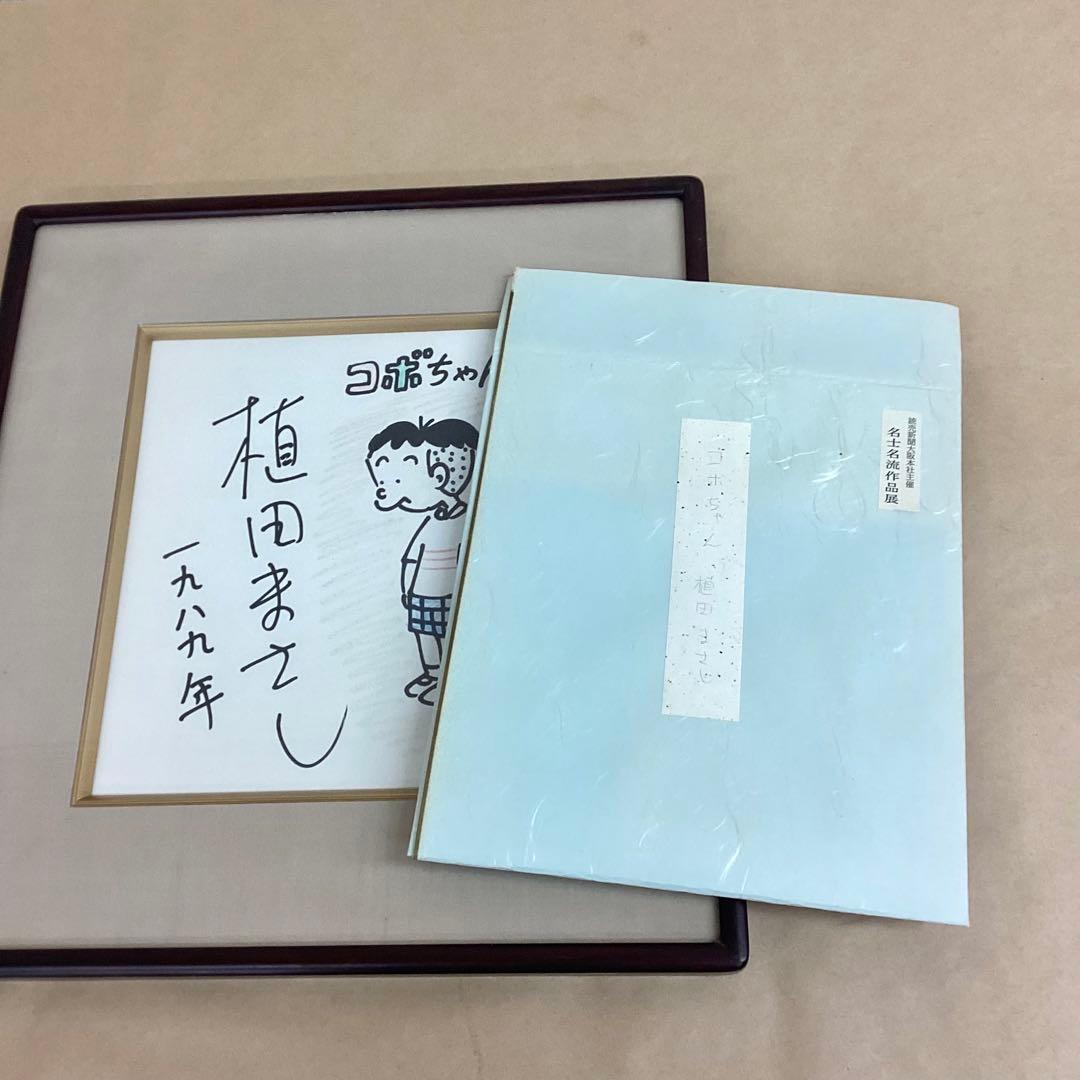 コボちゃん
植田まさし
一九八九年
読売新聞大阪本社主催
名士名流作品展
コボちゃん 植田まさし